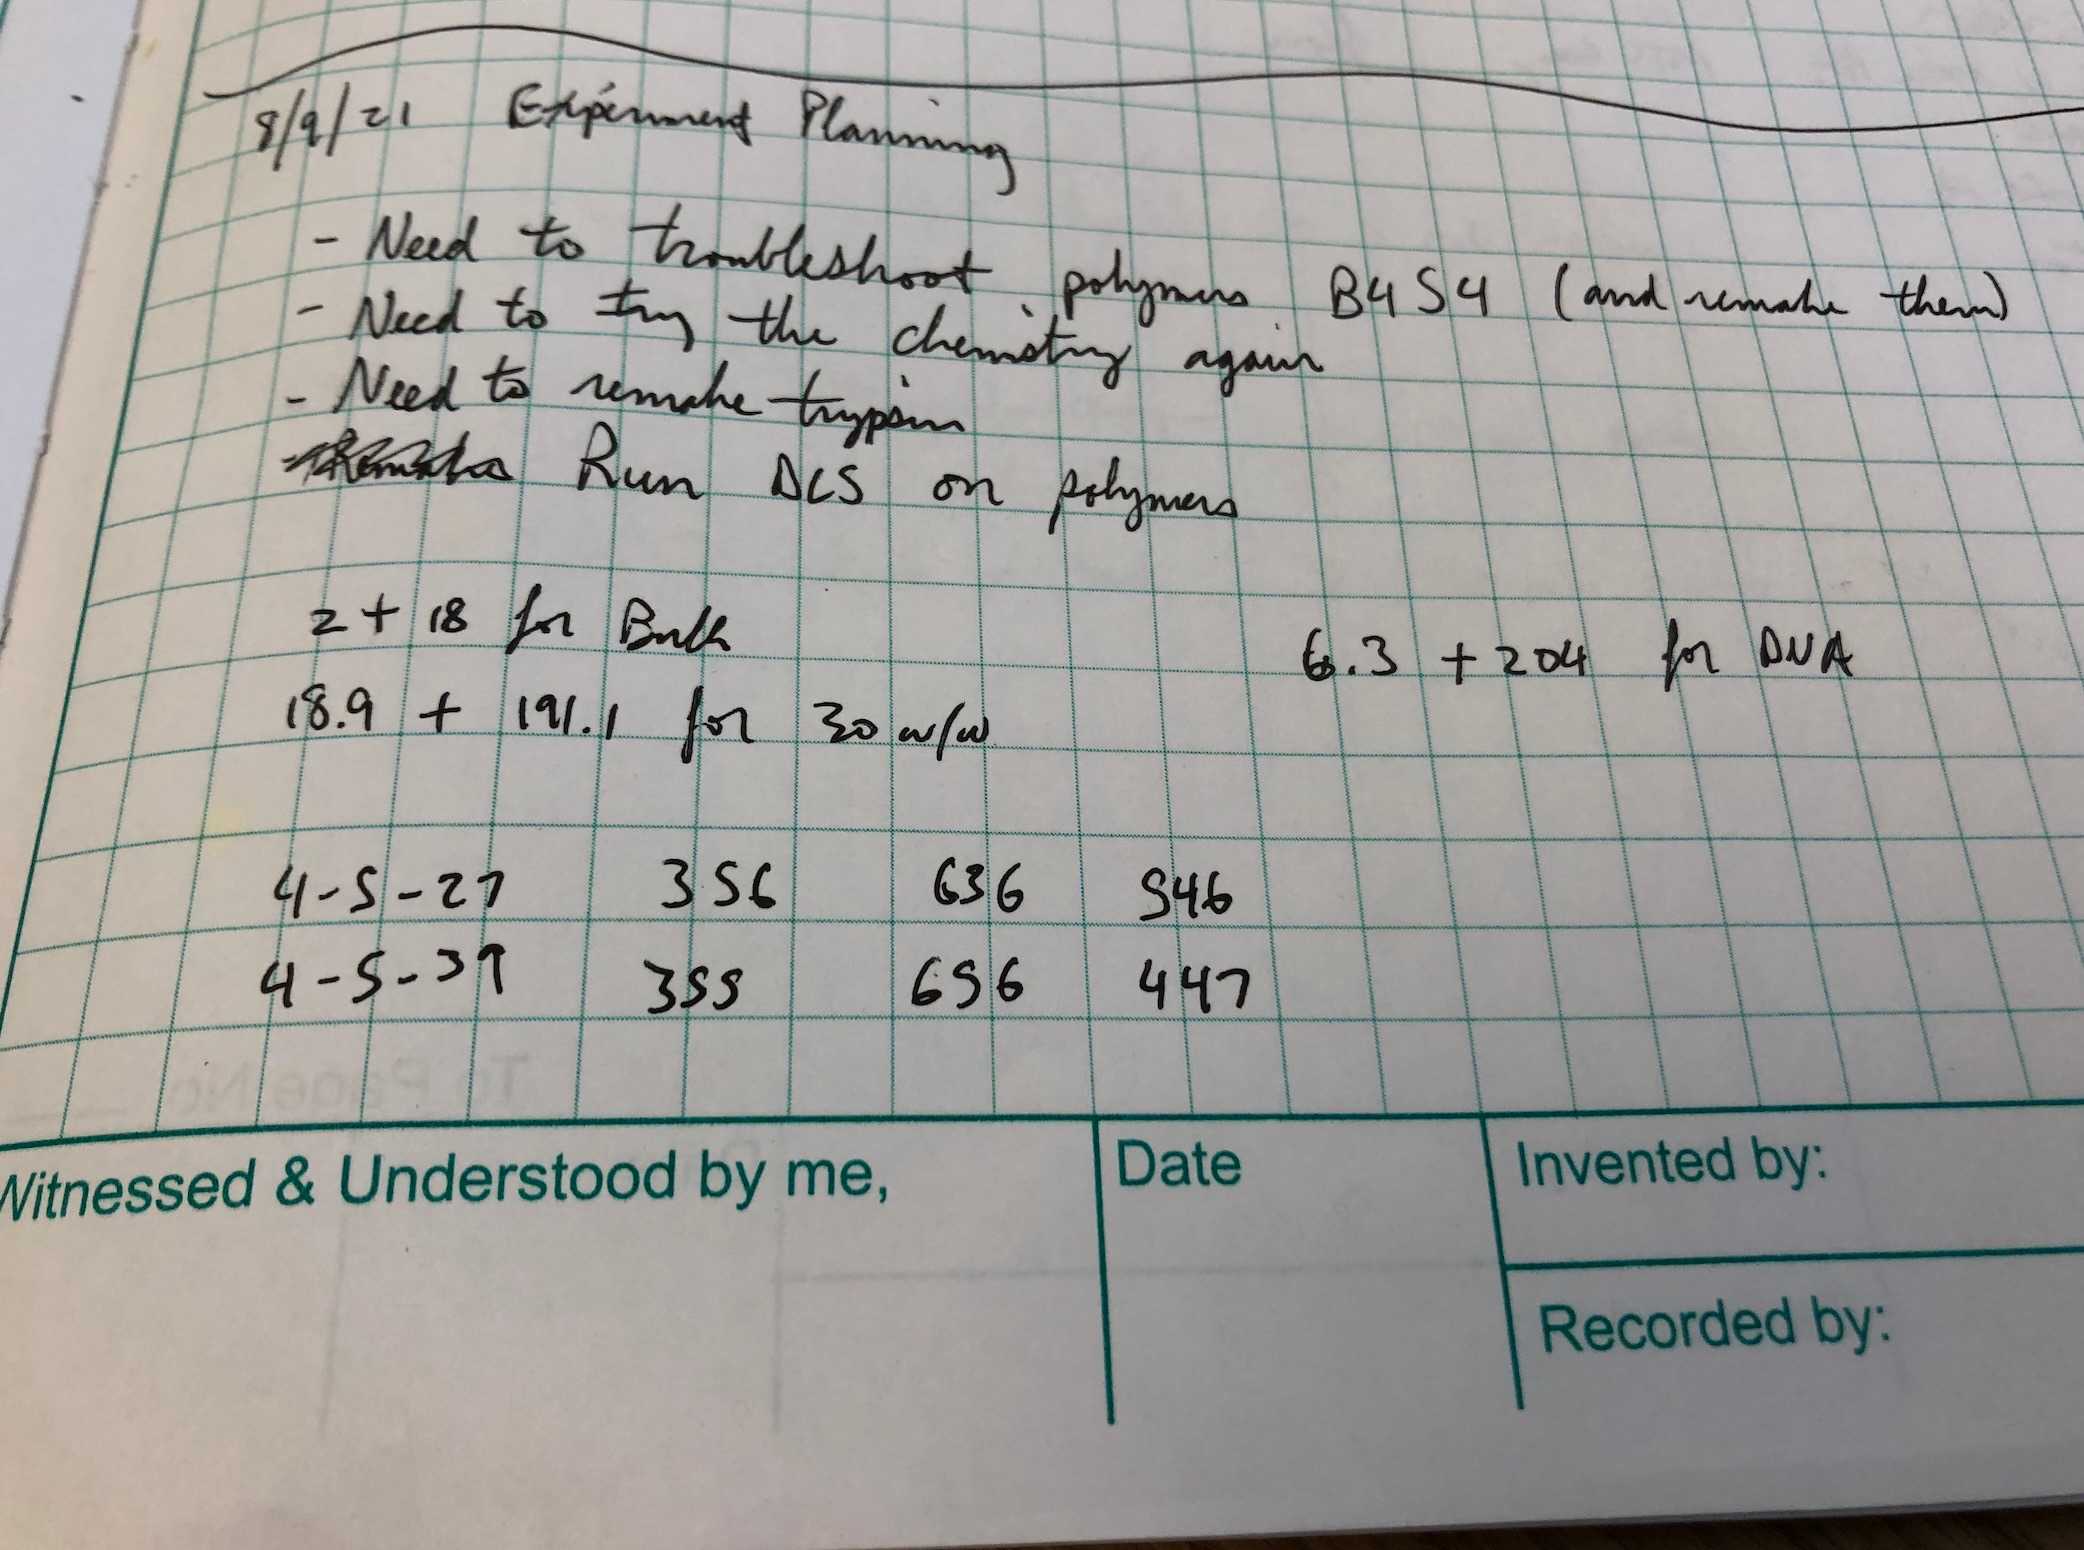 8/9/21 Experiment Planning
- Need to troubleshoot polymers B4S4 (and remake them)
- Need to try the chemistry again
- Need to remake trypsin
- Run DLS on polymers
2 + 18 for Bulk
6.3 + 204 for DNA
18.9 + 191.1 for 30 w/w
4-5-27 356 636 546
4-5-39 355 656 447
Witnessed & Understood by me,
Date
Invented by:
Recorded by: